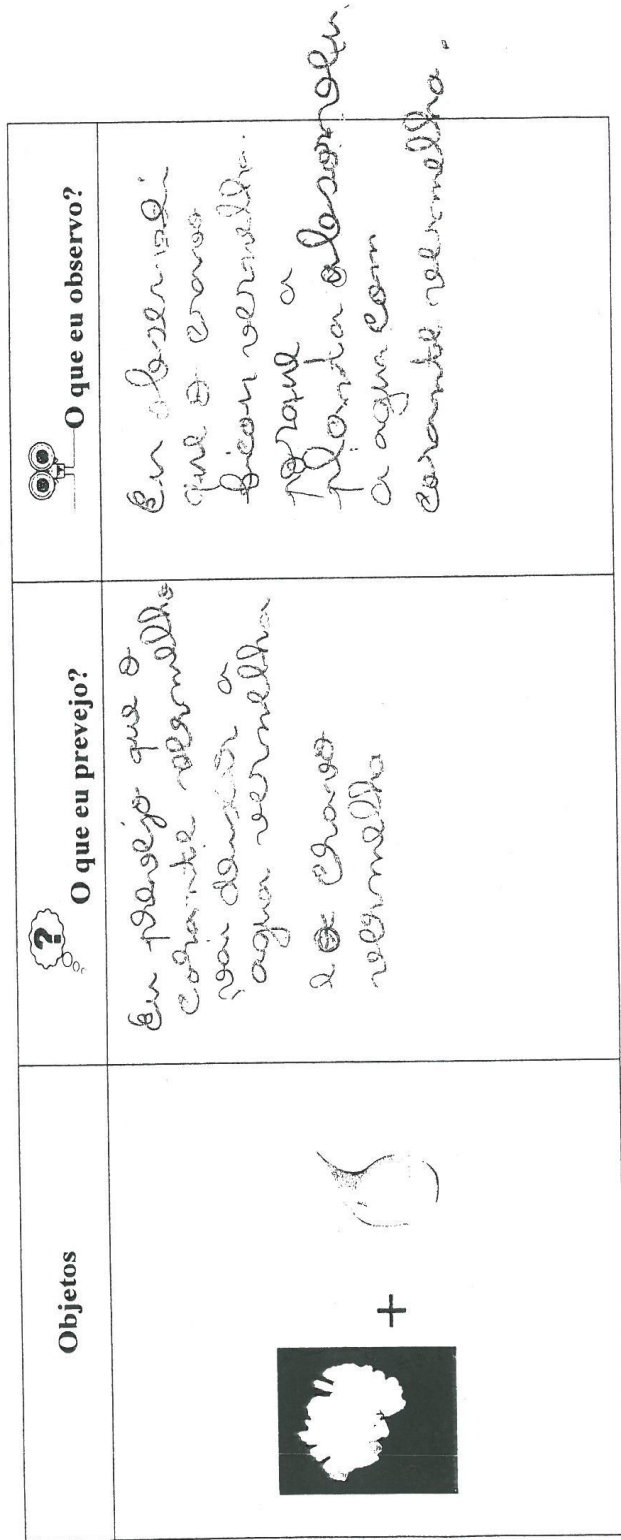 Objetos
O que eu prevejo?
O que eu observo?
+
Eu prevejo que o
corante vermelho
vai deixar a
agua vermelha
e o cravo
vermelho
Eu observei
que o cravo
ficou vermelho.
Porque a
planta absorveu
a agua com
corante vermelho.